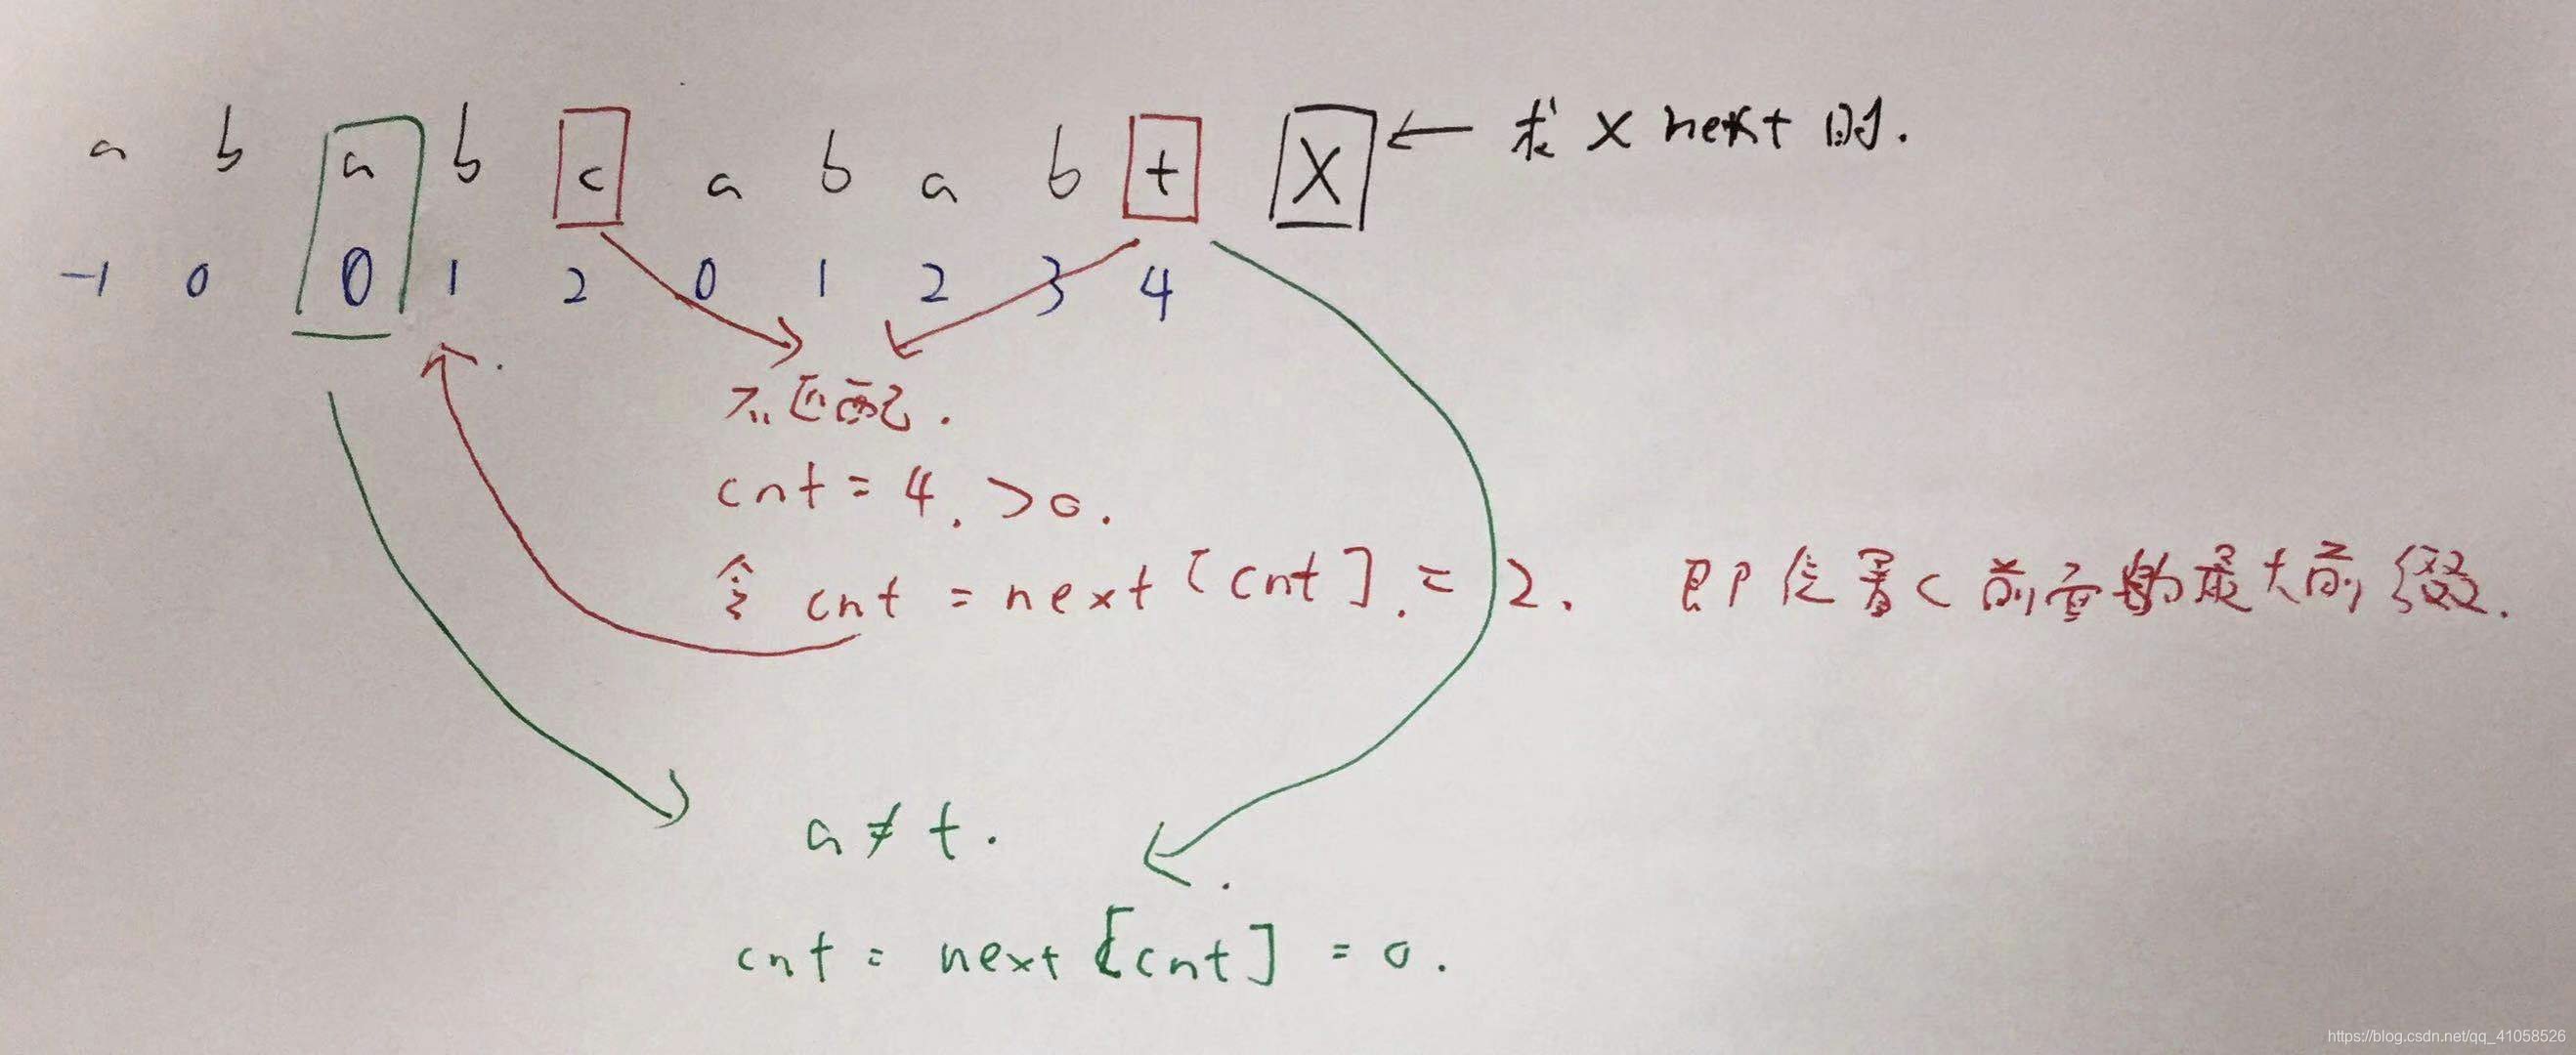 a b a b c a b a b t X ← 求 X next 时.
-1 0 0 1 2 0 1 2 3 4
不匹配.
cnt = 4. >0.
令 cnt = next [cnt]. = 2. 即位置c前面的最大前缀.
a ≠ t.
cnt = next [cnt] = 0.
https://blog.csdn.net/qq_41058526